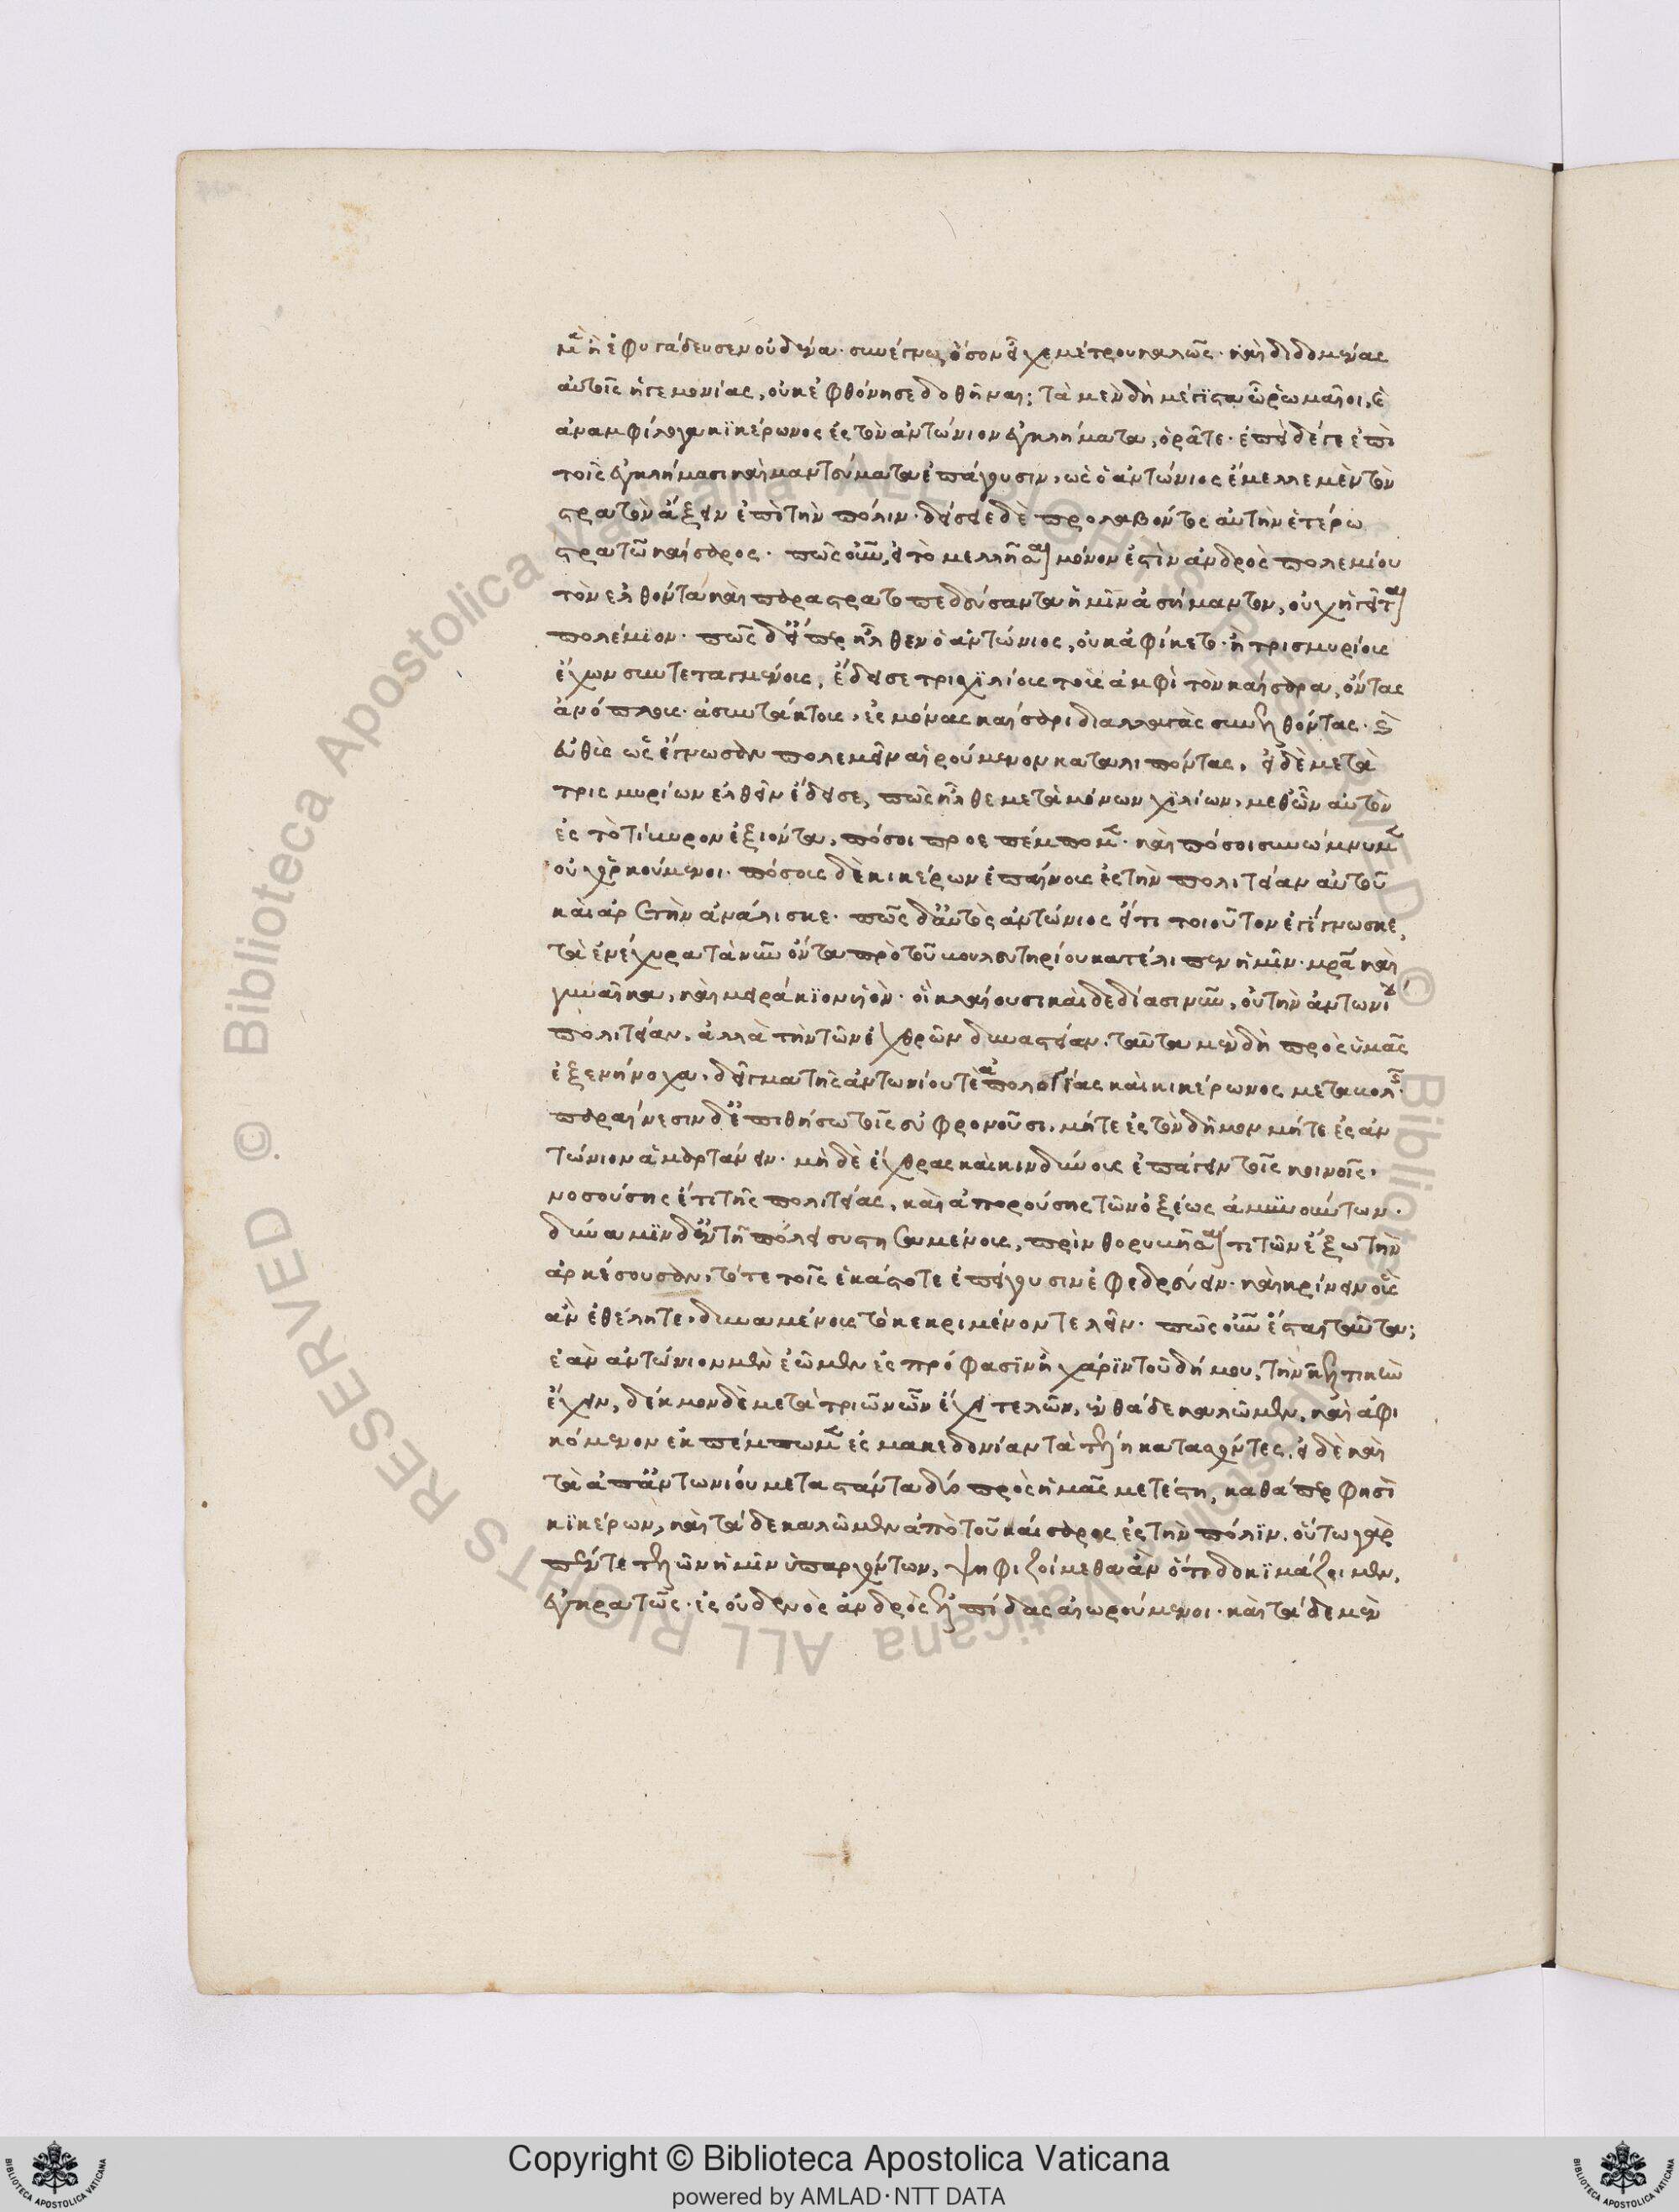 μεν ἢ ἐφυγάδευσεν οὐδένα· συνέγνω δ' ὅσον εἶχε μέτρου καλῶς· καὶ διδομένας
αὐτοῖς ἡγεμονίας, οὐκ ἐφθόνησε δοθῆναι; τὰ μὲν δὴ μέγιστα ὦ ῥωμαῖοι, καὶ
ἀναμφίλογα κικέρωνος ἐς τὸν ἀντώνιον ἐγκλήματα, ὁρᾶτε· ἐπεὶ δέ γε ἐπὶ
τοῖς ἐγκλήμασι καὶ μαντεύματα ἐπάγουσιν, ὡς ὁ ἀντώνιος ἔμελλε μὲν τὸν
στρατὸν ἄξειν ἐπὶ τὴν πόλιν· δείσειε δὲ προλαβόντος αὐτὴν ἑτέρω
στρατῶ καίσαρος· πῶς οὖν, εἰ τὸ μελλῆσαι μόνον ἐστὶν ἀνδρὸς πολεμίου
τὸν ἐλθόντα καὶ παραστρατοπεδεύσαντα ἡμῖν ἀσήμαντον, οὐχ ἡγεῖται
πολέμιον· πῶς δ' εἴπερ ἦλθεν ὁ ἀντώνιος, οὐκ ἀφίκετο· ἢ τρισμυρίους
ἔχων συντεταγμένους, ἔδεισε τρισχιλίους τοὺς ἀμφὶ τὸν καίσαρα, ὄντας
ἀνόπλους· ἀσυντάκτους, ἐς μόνας καίσαρι διαλλαγὰς συνελθόντας· καὶ
εὐθὺς ὡς ἔγνωσαν πολεμεῖν αἱρούμενον καταλιπόντας, εἰ δὲ μετὰ
τρισμυρίων ἐλθεῖν ἔδεισε, πῶς ἦλθε μετὰ μόνων χιλίων, μεθ' ὧν αὐτὸν
ἐς τὸ τίβυρον ἐξιόντα, πόσοι προεπέμπομεν· καὶ πόσοι συνώμνυμεν
οὐχ ὁρκούμενοι· πόσους δὲ κικέρων ἐπαίνους ἐς τὴν πολιτείαν αὐτοῦ
καὶ ἀρετὴν ἀνάλισκε· πῶς δ' αὐτὸς ἀντώνιος εἴ τι τοιοῦτον ἐγίγνωσκε,
τὰ ἐνέχυρα τὰ νῦν ὄντα πρὸ τοῦ βουλευτηρίου κατέλιπεν ἡμῖν· μητέρα καὶ
γυναῖκα, καὶ μειράκιον υἱὸν· οἳ κλαίουσι καὶ δεδίασι νῦν, οὐ τὴν ἀντωνίου
πολιτείαν, ἀλλὰ τὴν τῶν ἐχθρῶν δυναστείαν. ταῦτα μὲν δὴ πρὸς ὑμᾶς
ἐξενήνοχα, δεῖγμα τῆς ἀντωνίου τὲ ἀπολογίας καὶ κικέρωνος μεταβολῆς·
παραίνεσιν δ' ἐπιθήσω τοῖς εὐφρονοῦσι, μήτε ἐς τὸν δῆμον μήτε ἐς ἀν
τώνιον ἁμαρτάνειν· μὴ δὲ ἔχθρας καὶ κινδύνους ἐπάγειν τοῖς κοινοῖς,
νοσούσης ἔτι τῆς πολιτείας, καὶ ἀπορούσης τῶν ὀξέως ἀμυνούντων·
δύναμιν δ' ἐν τῆ πόλει συστησαμένους, πρὶν θορυβῆσαι τι τῶν ἔξω τὴν
ἀρκέσουσαν, τότε τοῖς ἑκάστοτε ἐπείγουσιν ἐφεδρεύειν· καὶ κρίνειν οὓς
ἂν ἐθέλητε, δυναμένους τὸ κεκριμένον τελεῖν· πῶς οὖν ἔσται ταῦτα;
ἐὰν ἀντώνιον μὲν ἐῶμεν ἐς πρόφασιν ἢ χάριν τοῦ δήμου, τὴν κελτικὴν
ἔχειν, δέκμον δὲ μετὰ τριῶν ὧν ἔχει τελῶν, ἐνθάδε καλῶμεν, καὶ ἀφι
κόμενον ἐκπέμπωμεν ἐς μακεδονίαν τὰ τέλη κατασχόντες, εἰ δὲ καὶ
τὰ ἀπ' ἀντωνίου μεταστάντα δύο πρὸς ἡμᾶς μετέστη, καθάπερ φησὶ
κικέρων, καὶ τάδε καλῶμεν ἀπὸ τοῦ καίσαρος ἐς τὴν πόλιν. οὕτω γὰρ
πέντε τελῶν ἡμῖν ὑπαρχόντων, ψηφιζοίμεθα ἂν ὅτι δοκιμάζοιμεν,
ἐγκρατῶς· ἐς οὐδενὸς ἀνδρὸς ἐλπίδας αἰωρούμενοι· καὶ τάδε μὲν
Copyright © Biblioteca Apostolica Vaticana
powered by AMLAD·NTT DATA